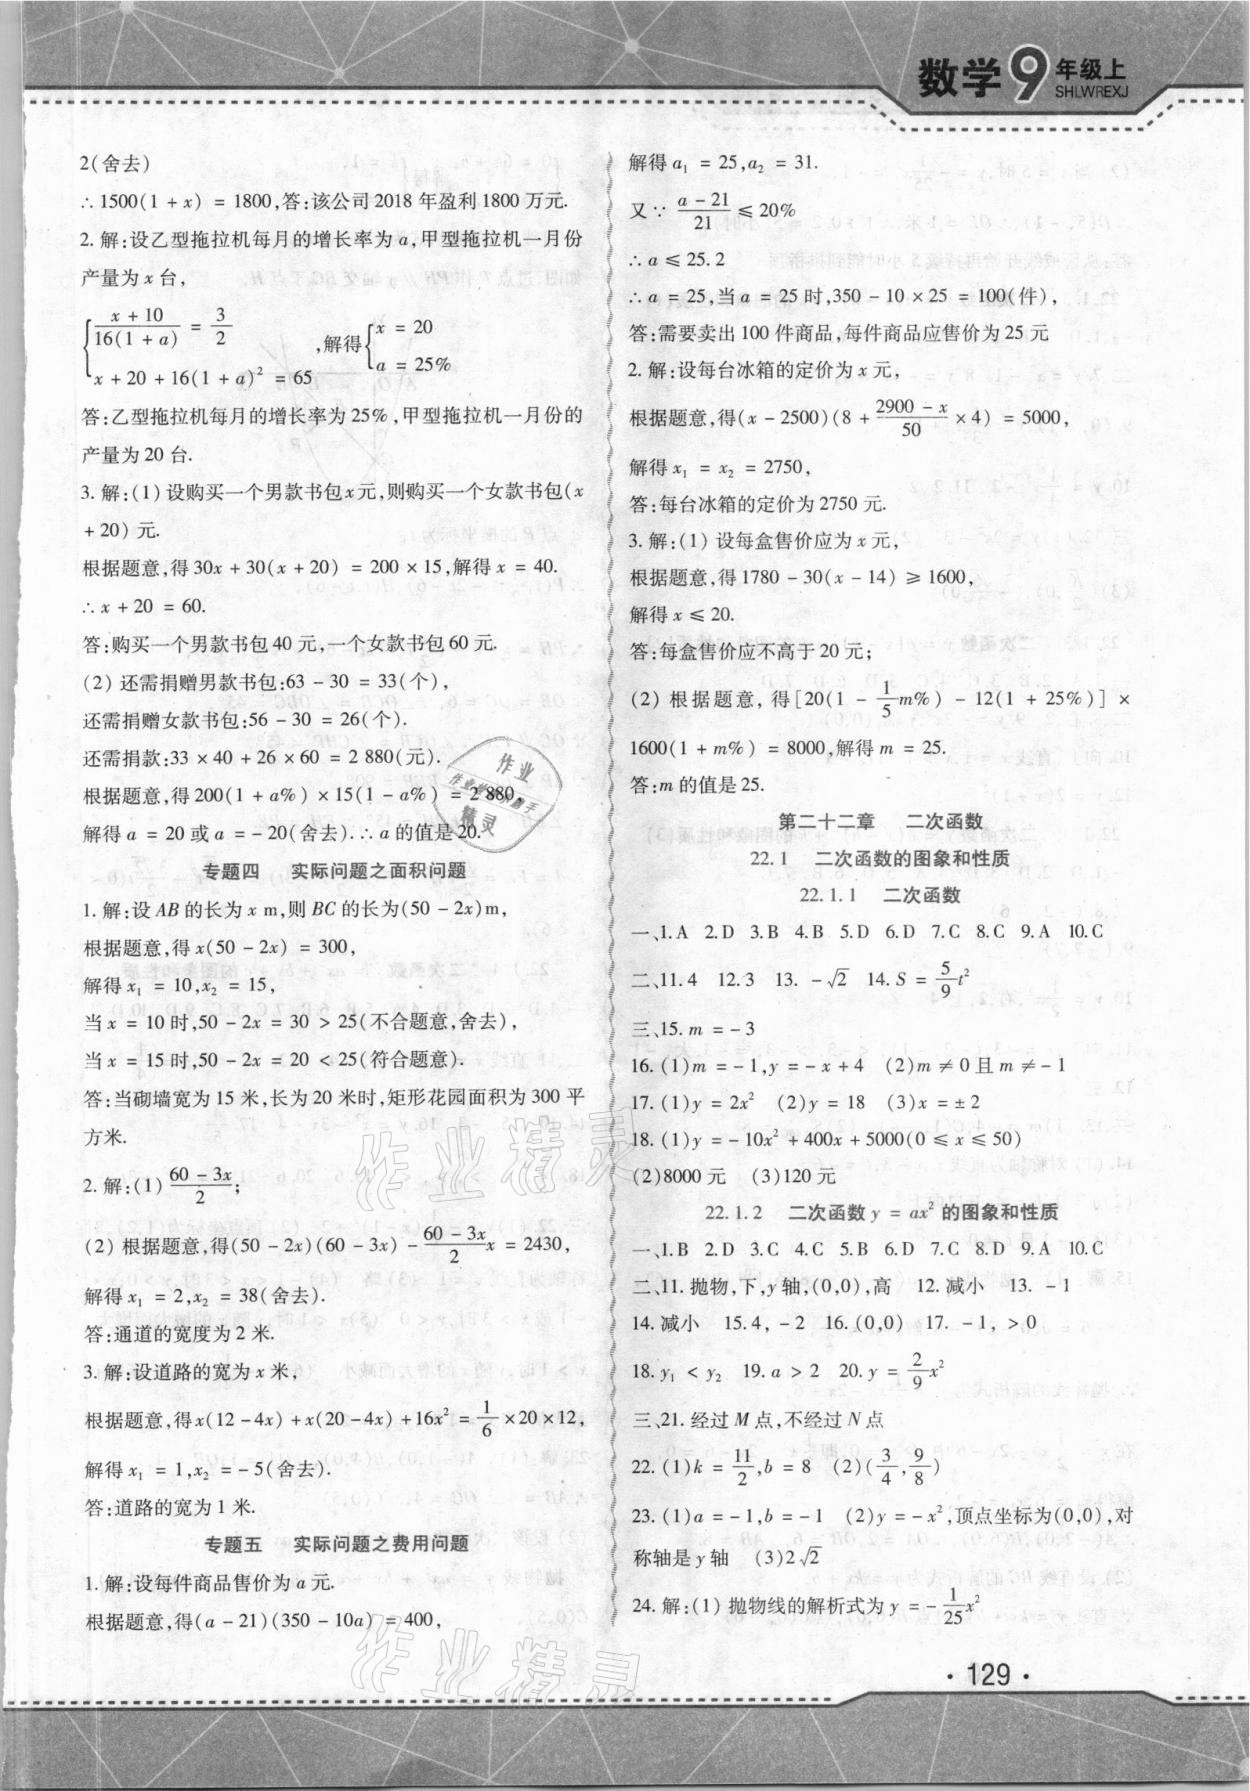 数学9年级上
SHLWREXJ
2(舍去)
∴1500(1+x)=1800,答:该公司2018年盈利1800万元.
2.解:设乙型拖拉机每月的增长率为a,甲型拖拉机一月份
产量为x台,
{(x+10)/(16(1+a))=3/2, x+20+16(1+a)²=65 ,解得{x=20, a=25%
答:乙型拖拉机每月的增长率为25%,甲型拖拉机一月份的
产量为20台.
3.解:(1)设购买一个男款书包x元,则购买一个女款书包(x
+20)元.
根据题意,得30x+30(x+20)=200×15,解得x=40.
∴x+20=60.
答:购买一个男款书包40元,一个女款书包60元.
(2)还需捐赠男款书包:63-30=33(个),
还需捐赠女款书包:56-30=26(个).
还需捐款:33×40+26×60=2 880(元).
根据题意,得200(1+a%)×15(1-a%)=2 880,
解得a=20或a=-20(舍去).∴a的值是20.
专题四 实际问题之面积问题
1.解:设AB的长为x m,则BC的长为(50-2x)m,
根据题意,得x(50-2x)=300,
解得x₁=10,x₂=15,
当x=10时,50-2x=30>25(不合题意,舍去),
当x=15时,50-2x=20<25(符合题意).
答:当砌墙宽为15米,长为20米时,矩形花园面积为300平
方米.
2.解:(1)(60-3x)/2;
(2)根据题意,得(50-2x)(60-3x)-(60-3x)/2 x=2430,
解得x₁=2,x₂=38(舍去).
答:通道的宽度为2米.
3.解:设道路的宽为x米,
根据题意,得x(12-4x)+x(20-4x)+16x²=1/6×20×12,
解得x₁=1,x₂=-5(舍去).
答:道路的宽为1米.
专题五 实际问题之费用问题
1.解:设每件商品售价为a元.
根据题意,得(a-21)(350-10a)=400,
解得a₁=25,a₂=31.
又∵(a-21)/21≤20%
∴a≤25.2
∴a=25,当a=25时,350-10×25=100(件),
答:需要卖出100件商品,每件商品应售价为25元
2.解:设每台冰箱的定价为x元,
根据题意,得(x-2500)(8+(2900-x)/50×4)=5000,
解得x₁=x₂=2750,
答:每台冰箱的定价为2750元.
3.解:(1)设每盒售价应为x元,
根据题意,得1780-30(x-14)≥1600,
解得x≤20.
答:每盒售价应不高于20元;
(2)根据题意,得[20(1-1/5m%)-12(1+25%)]×
1600(1+m%)=8000,解得m=25.
答:m的值是25.
第二十二章 二次函数
22.1 二次函数的图象和性质
22.1.1 二次函数
一、1.A 2.D 3.B 4.B 5.D 6.D 7.C 8.C 9.A 10.C
二、11.4 12.3 13.-√2 14.S=5/9t²
三、15.m=-3
16.(1)m=-1,y=-x+4 (2)m≠0且m≠-1
17.(1)y=2x² (2)y=18 (3)x=±2
18.(1)y=-10x²+400x+5000(0≤x≤50)
(2)8000元 (3)120元
22.1.2 二次函数y=ax²的图象和性质
一、1.B 2.D 3.C 4.C 5.B 6.D 7.C 8.D 9.A 10.C
二、11.抛物,下,y轴,(0,0),高 12.减小 13.-1
14.减小 15.4,-2 16.(0,0) 17.-1,>0
18.y₁<y₂ 19.a>2 20.y=2/9x²
三、21.经过M点,不经过N点
22.(1)k=11/2,b=8 (2)(3/4,9/8)
23.(1)a=-1,b=-1 (2)y=-x²,顶点坐标为(0,0),对
称轴是y轴 (3)2√2
24.解:(1)抛物线的解析式为y=-1/25x²
·129·
作业精灵
作业精灵